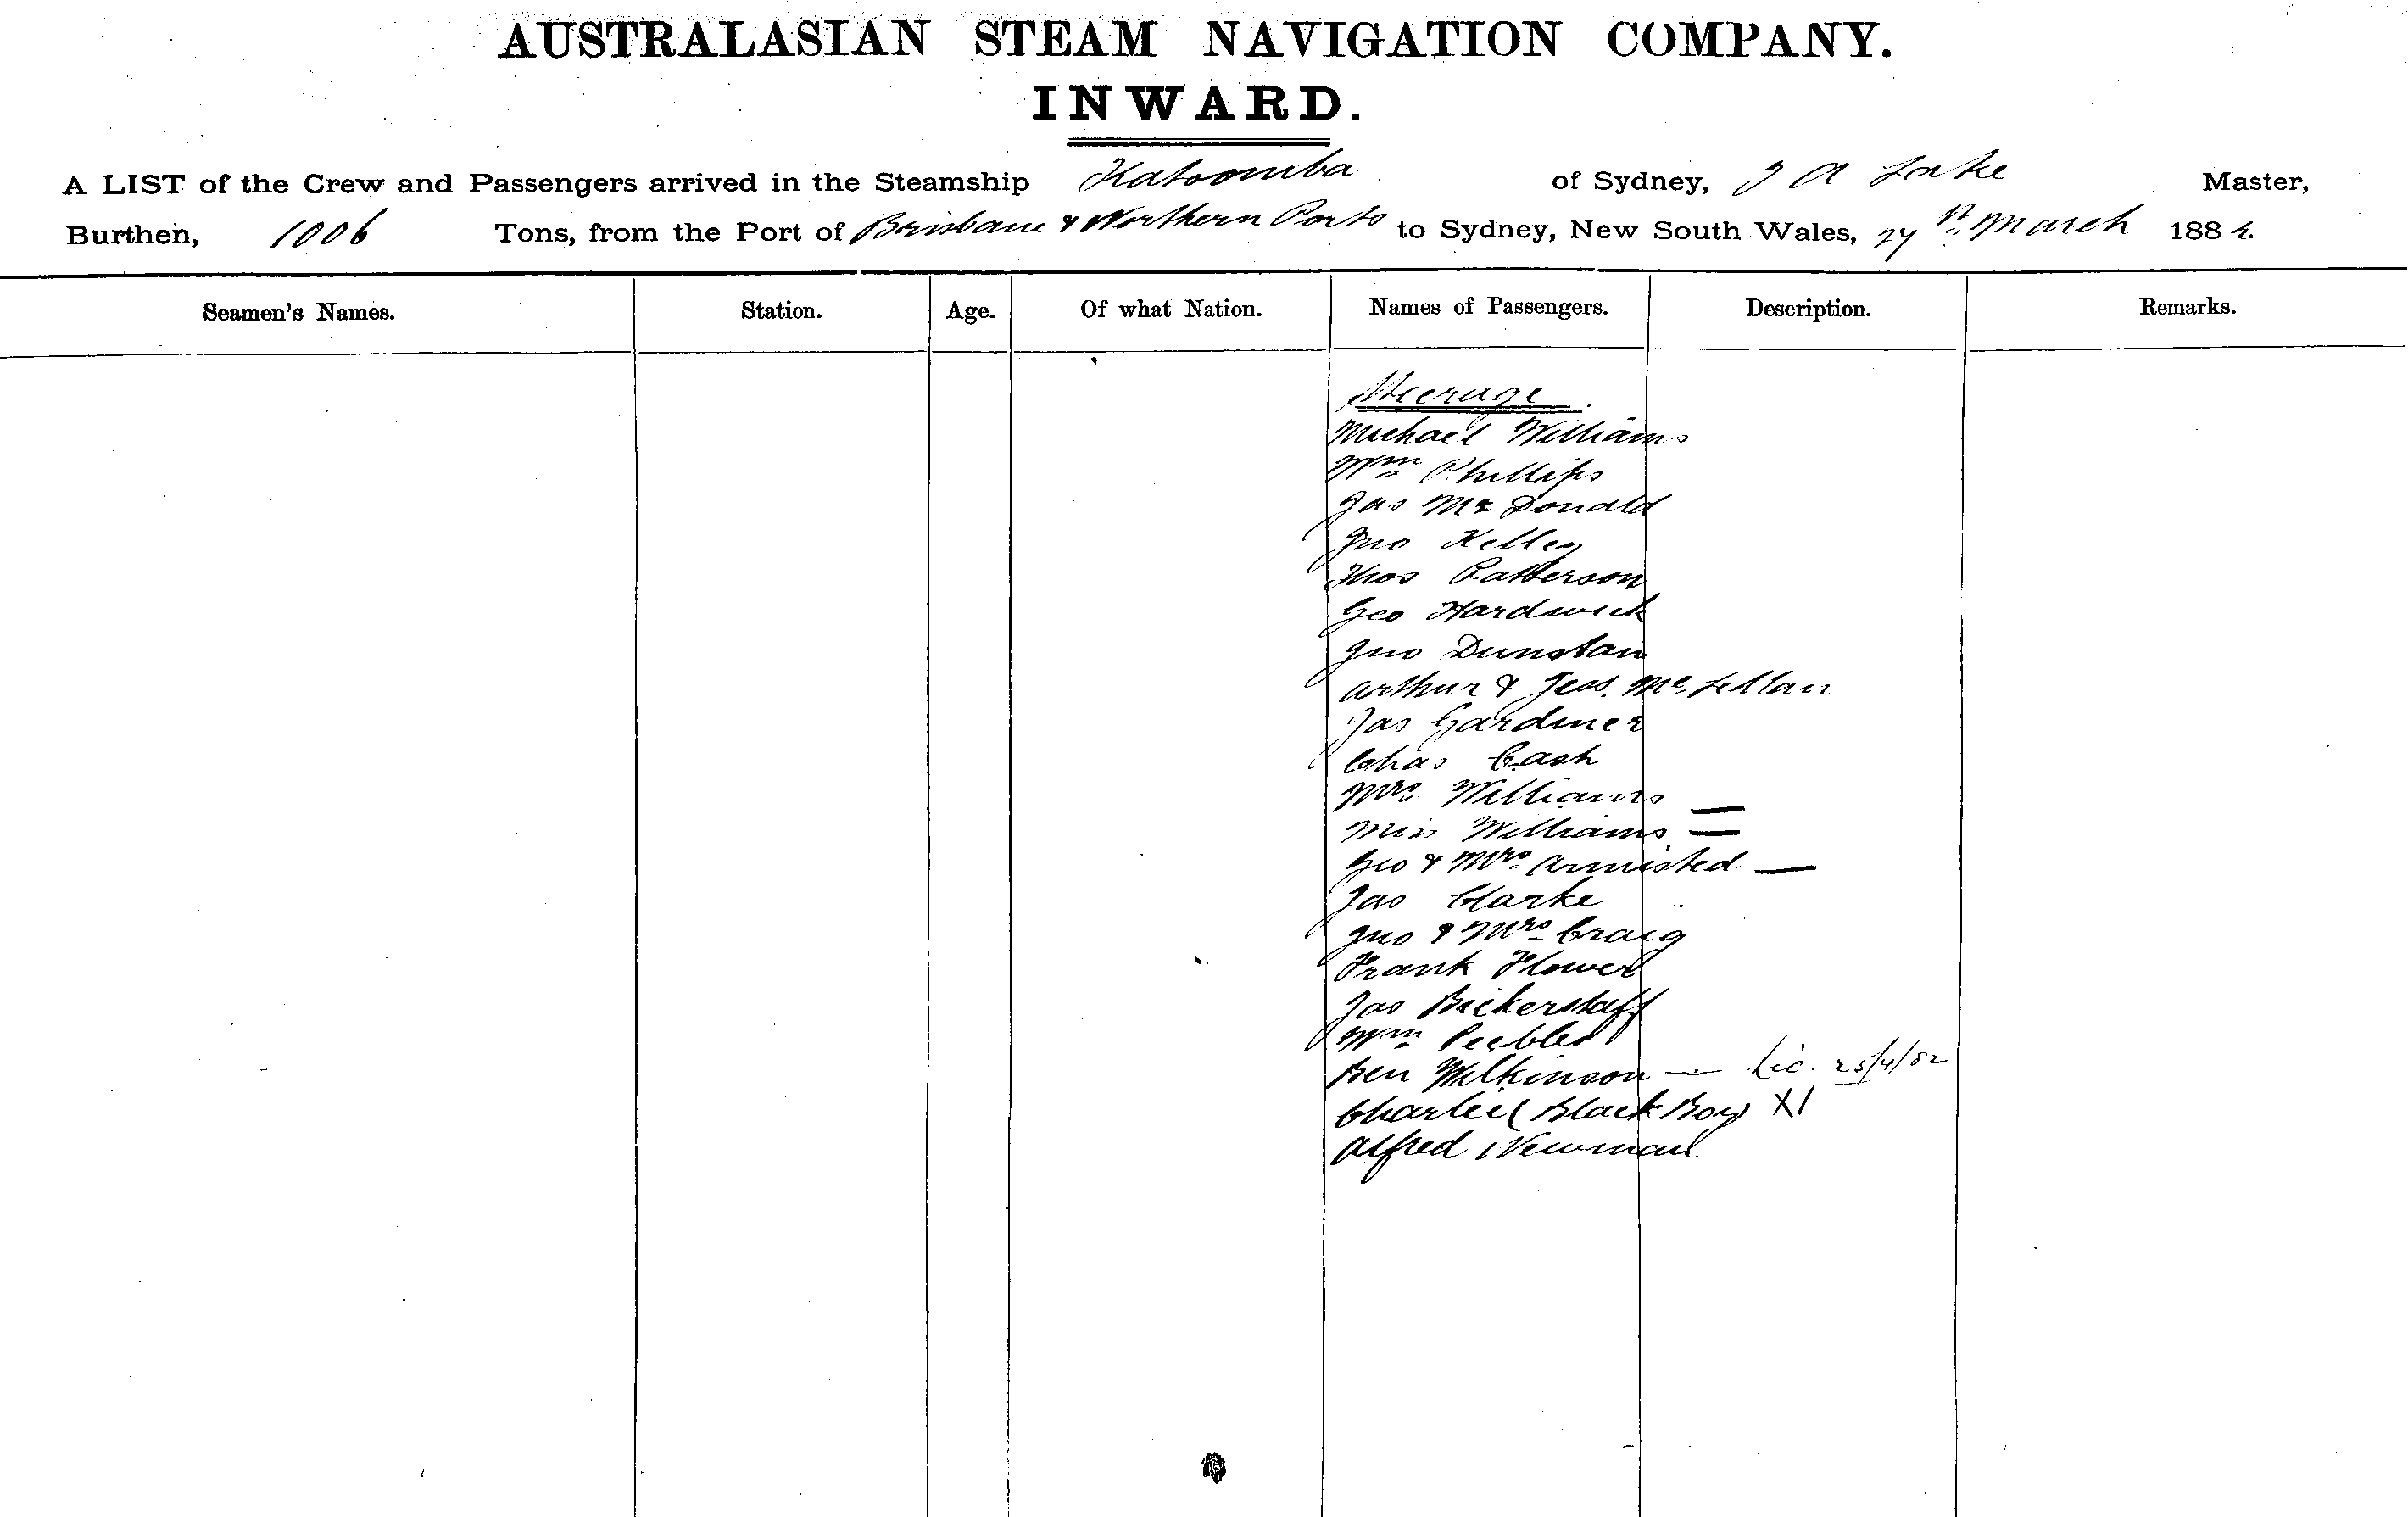 AUSTRALASIAN STEAM NAVIGATION COMPANY.
INWARD.
A LIST of the Crew and Passengers arrived in the Steamship Katoomba of Sydney, J A Lake Master,
Burthen, 1006 Tons, from the Port of Brisbane & Northern Ports to Sydney, New South Wales, 27th March 188
Seamen's Names. Station. Age. Of what Nation. Names of Passengers. Description. Remarks.
Steerage
Michael Williams
Wm Phillips
Jas Mc Donald
Jno Kelley
Thos Patterson
Geo Hardwick
Jno Dunstan
Arthur & Jess. Mc Lellan
Jas Gardiner
Chas Cash
Mrs Williams —
Miss Williams —
Geo & Mrs Armisted —
Jas Clarke
Jno & Mrs Craig
Frank Flower
Jas Bickerstaff
Wm Peebles
Ben Wilkinson — Lic. 25/4/82
Charlie (Black Boy) X1
Alfred Newman